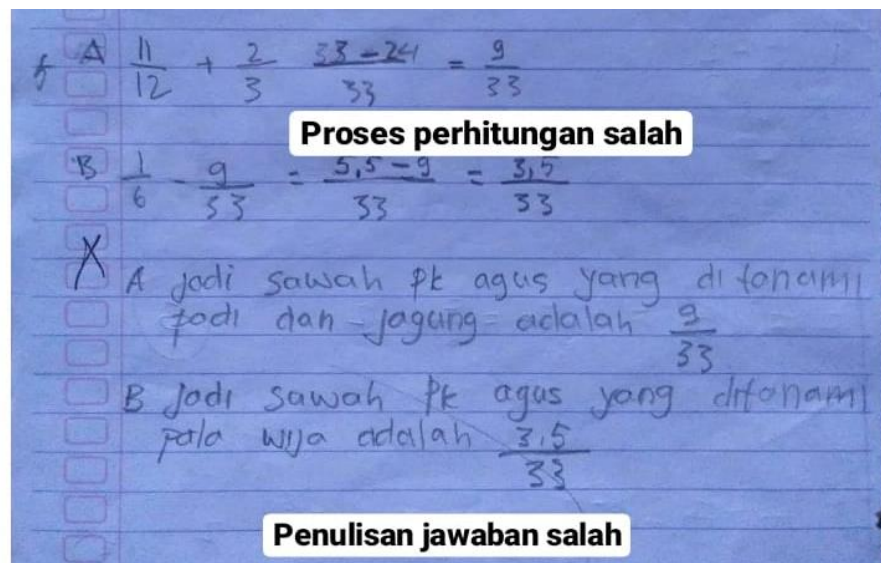 A 11/12 + 2/3 33-24/33 = 9/33
Proses perhitungan salah
B 1/6 - 9/33 = 5,5-9/33 = 3,5/33
A jodi sawah pk agus yang di tonami
podi dan jagung adalah 9/33
B Jodi sawah Pk agus yang ditonami
pala wija adalah 3.5/33
Penulisan jawaban salah